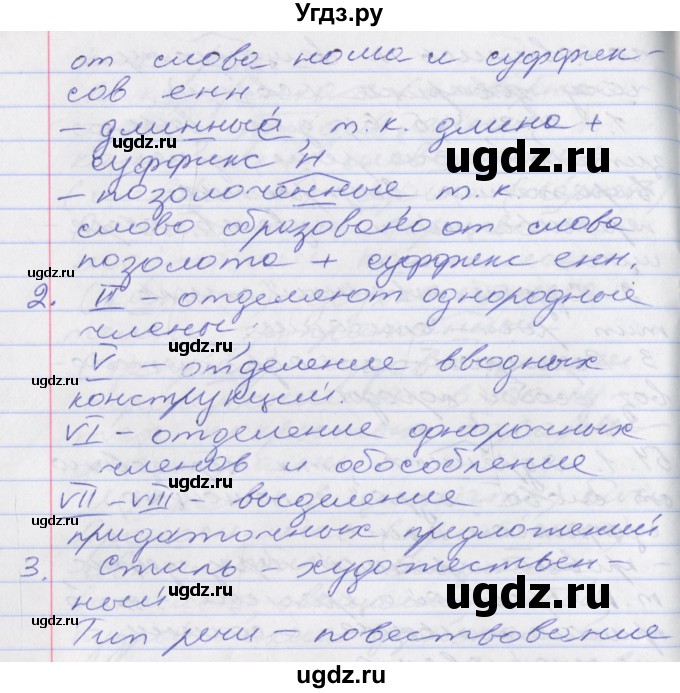 Угдз.ру
от слова нома и суффик-
сов енн
- длинный, т.к. длина +
суффикс н
- позолоченные, т.к.
слово образовано от слова
позолота + суффикс енн.
2. II - отделяют однородные
члены;
V - отделение вводных
конструкций.
VI - отделение однорочных
членов и обособление
VII - VIII - выделение
придаточных предложений
3. Стиль - художествен-
ный
Тип речи - повествование
ugdz.ru
ugdz.ru
ugdz.ru
ugdz.ru
ugdz.ru
ugdz.ru
ugdz.ru
ugdz.ru
ugdz.ru
ugdz.ru
ugdz.ru
ugdz.ru
ugdz.ru